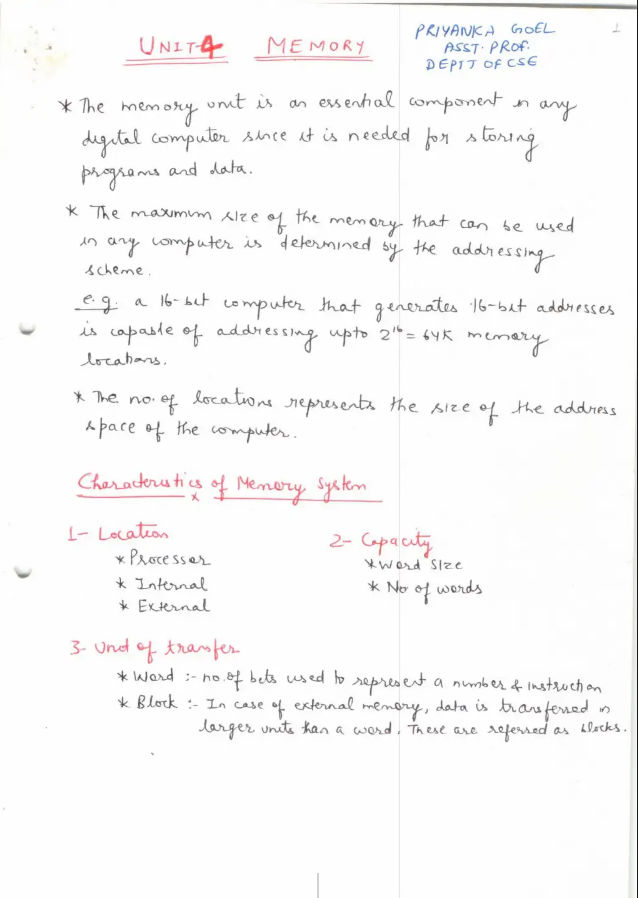 PRIYANKA GOEL
ASST. PROF.
DEPTT OF CSE
1
UNIT-4 MEMORY
* The memory unit is an essential component in any
digital computer since it is needed for storing
programs and data.
* The maximum size of the memory that can be used
in any computer is determined by the addressing
scheme.
e.g. a 16-bit computer that generates 16-bit addresses
is capable of addressing upto 2¹⁶ = 64K memory
locations.
* The no. of locations represents the size of the address
space of the computer.
Characteristics of Memory System
1- Location
* Processor
* Internal
* External
2- Capacity
* Word Size
* No of words
3- Unit of transfer
* Word :- no. of bits used to represent a number & instruction
* Block :- In case of external memory, data is transferred in
larger units than a word. These are referred as blocks.